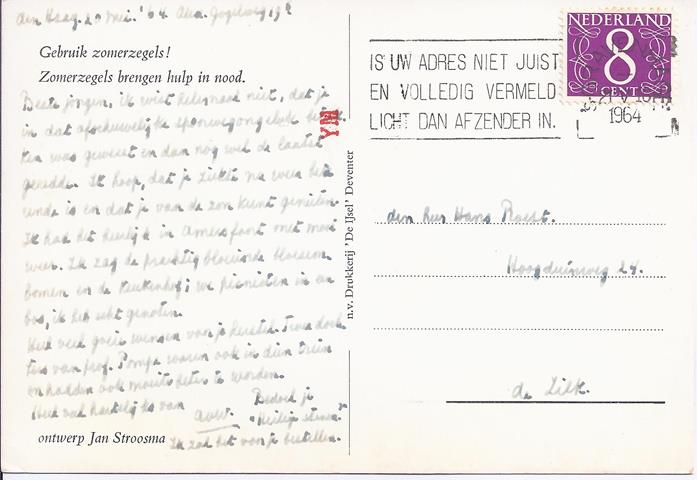 den Haag. 20 Mei. '64.
Gebruik zomerzegels!
Zomerzegels brengen hulp in nood.
Beste jongen, ik wist helemaal niet, dat je
in dat afschuwelijke spoorwegongeluk betrok
ken was geweest en dan nog wel de laatst
geredde. Ik hoop, dat je ziekte nu weer ten
einde is en dat je van de zon kunt genieten.
Ik had het heerlijk in Amersfoort met mooi
weer. Ik zag de prachtig bloeiende bloesem
bomen en de Keukenhof; we picnicten in een
bos, ik heb echt genoten.
Heel veel goede wensen van je herstel. Twee doch
ters van prof. Pompe waren ook in dien trein
en hadden ook moeite beter te worden.
Heel veel hartelijks van
Bedoel je
"Heilige stenen?"
Ik zal het voor je bestellen.
ontwerp Jan Stroosma
n.v. Drukkerij 'De IJsel' Deventer
YM
IS UW ADRES NIET JUIST
EN VOLLEDIG VERMELD
LICHT DAN AFZENDER IN.
NEDERLAND
8
CENT
1964
den heer Hans Roest.
Hoogduinweg 24.
de Zilk.